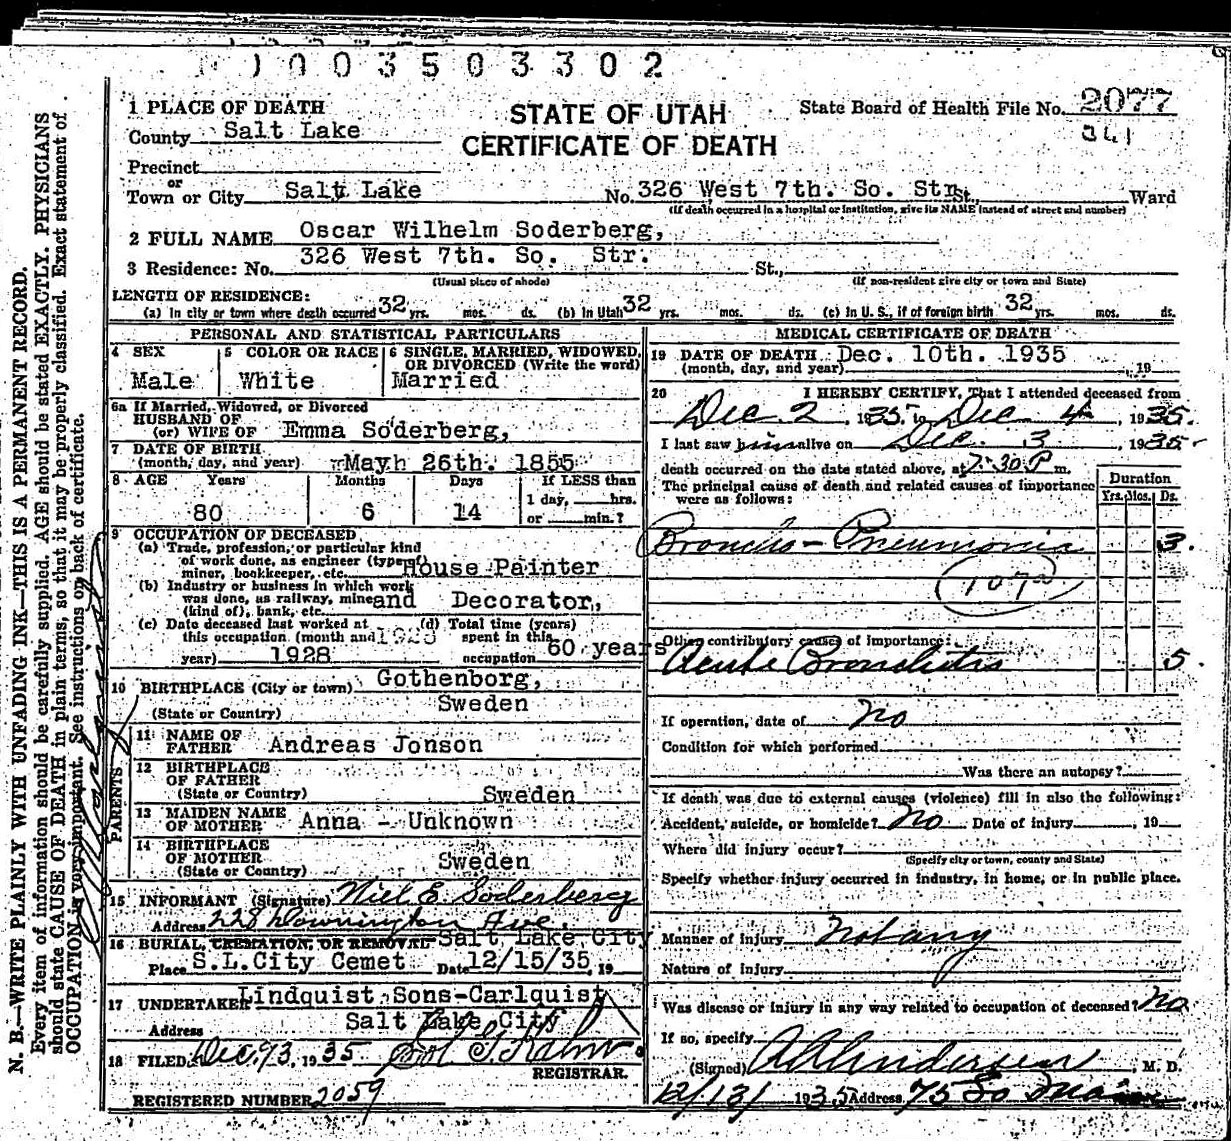 1003503302
1 PLACE OF DEATH
STATE OF UTAH
CERTIFICATE OF DEATH
State Board of Health File No. 2077
County Salt Lake
Precinct
or
Town or City Salt Lake No. 326 West 7th. So. Str. St., Ward
(If death occurred in a hospital or institution, give its NAME instead of street and number)
2 FULL NAME Oscar Wilhelm Soderberg,
3 Residence: No. 326 West 7th. So. Str. St.,
(Usual place of abode) (If non-resident give city or town and State)
LENGTH OF RESIDENCE:
(a) In city or town where death occurred 32 yrs. mos. ds. (b) In Utah 32 yrs. mos. ds. (c) In U. S., if of foreign birth 32 yrs. mos. ds.
PERSONAL AND STATISTICAL PARTICULARS
4 SEX
Male
5 COLOR OR RACE
White
6 SINGLE, MARRIED, WIDOWED,
OR DIVORCED (Write the word)
Married
6a If Married, Widowed, or Divorced
HUSBAND OF
(or) WIFE OF Emma Soderberg,
7 DATE OF BIRTH
(month, day, and year) May 26th. 1855
8 AGE Years Months Days If LESS than
1 day, hrs.
or min.?
80 6 14
9 OCCUPATION OF DECEASED
(a) Trade, profession, or particular kind
of work done, as engineer (type of
miner, bookkeeper, etc. House Painter
(b) Industry or business in which work
was done, as railway, mine
(kind of), bank, etc. and Decorator,
(c) Date deceased last worked at
this occupation (month and
year) 1928
(d) Total time (years)
spent in this
occupation 60 years
10 BIRTHPLACE (City or town) Gothenborg,
(State or Country) Sweden
PARENTS
11 NAME OF
FATHER Andreas Jonson
12 BIRTHPLACE
OF FATHER
(State or Country) Sweden
13 MAIDEN NAME
OF MOTHER Anna - Unknown
14 BIRTHPLACE
OF MOTHER
(State or Country) Sweden
15 INFORMANT (Signature) Niel E. Soderberg
Address 228 Downington Ave.
16 BURIAL, CREMATION, OR REMOVAL Salt Lake City
Place S.L.City Cemet Date 12/15/35, 19
17 UNDERTAKER Lindquist Sons-Carlquist
Address Salt Lake City
18 FILED Dec. 13, 1935
REGISTRAR.
REGISTERED NUMBER 2059
MEDICAL CERTIFICATE OF DEATH
19 DATE OF DEATH Dec. 10th. 1935
(month, day, and year) , 19
20 I HEREBY CERTIFY, That I attended deceased from
Dec 2, 1935, to Dec 4, 1935.
I last saw him alive on Dec. 3 1935-
death occurred on the date stated above, at 7:30 P m.
The principal cause of death and related causes of importance
were as follows:
Duration
Yrs. Mos. Ds.
Broncho-Pneumonia 3.
Other contributory causes of importance:
Acute Bronchitis 5.
If operation, date of No
Condition for which performed
Was there an autopsy?
If death was due to external causes (violence) fill in also the following:
Accident, suicide, or homicide? No Date of injury , 19
Where did injury occur?
(Specify city or town, county and State)
Specify whether injury occurred in industry, in home, or in public place.
Manner of injury Not any
Nature of injury
Was disease or injury in any way related to occupation of deceased? No
If so, specify
(Signed) , M. D.
12/13/ 1935 Address 75 So Main
N. B.—WRITE PLAINLY WITH UNFADING INK—THIS IS A PERMANENT RECORD.
Every item of information should be carefully supplied. AGE should be stated EXACTLY. PHYSICIANS
should state CAUSE OF DEATH in plain terms, so that it may be properly classified. Exact statement of
OCCUPATION is very important. See instructions on back of certificate.